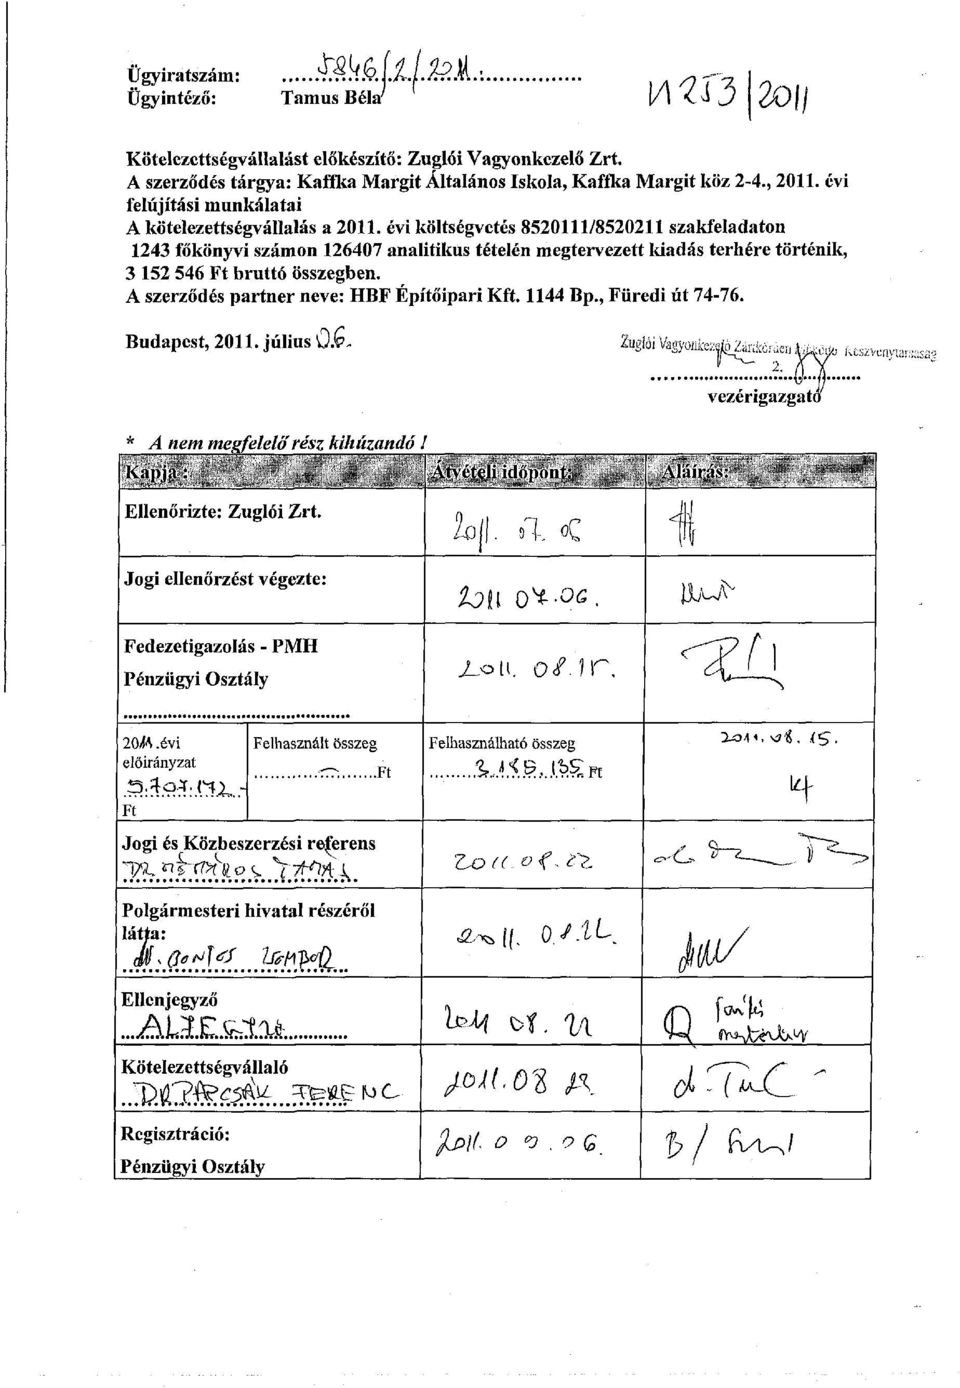 Ügyiratszám: 5846/2/2011.
Ügyintéző: Tamus Béla
253/2011
Kötelezettségvállalást előkészítő: Zuglói Vagyonkezelő Zrt.
A szerződés tárgya: Kaffka Margit Általános Iskola, Kaffka Margit köz 2-4., 2011. évi
felújítási munkálatai
A kötelezettségvállalás a 2011. évi költségvetés 8520111/8520211 szakfeladaton
1243 főkönyvi számon 126407 analitikus tételén megtervezett kiadás terhére történik,
3 152 546 Ft bruttó összegben.
A szerződés partner neve: HBF Építőipari Kft. 1144 Bp., Füredi út 74-76.
Budapest, 2011. július 06.
Zuglói Vagyonkezelő Zártkörűen Működő Részvénytársaság
2.
vezérigazgató
* A nem megfelelő rész kihúzandó !
Kapja: Átvételi időpont: Aláírás:
Ellenőrizte: Zuglói Zrt.
2011. 07. 06
Jogi ellenőrzést végezte:
2011 07.06.
Fedezetigazolás - PMH
Pénzügyi Osztály
2011. 08.15.
2011.évi Felhasznált összeg Felhasználható összeg 2011. 08. 15.
előirányzat
5.707.172.- Ft - Ft 3.185.135 Ft
Jogi és Közbeszerzési referens
DR. MÉSZÁROS TAMÁS 2011. 08. 22
Polgármesteri hivatal részéről
látta:
2011. 08.22.
Ellenjegyző
2011 08. 22
Kötelezettségvállaló
DR PAPCSÁK FERENC 2011.08 22.
Regisztráció:
Pénzügyi Osztály
2011. 09. 06.